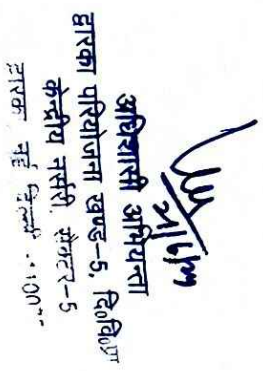 21/6/24
अधिशासी अभियन्ता
द्वारका परियोजना खण्ड-5, दि०वि०प्रा
केन्द्रीय नर्सरी, सेक्टर-5
द्वारका नई दिल्ली